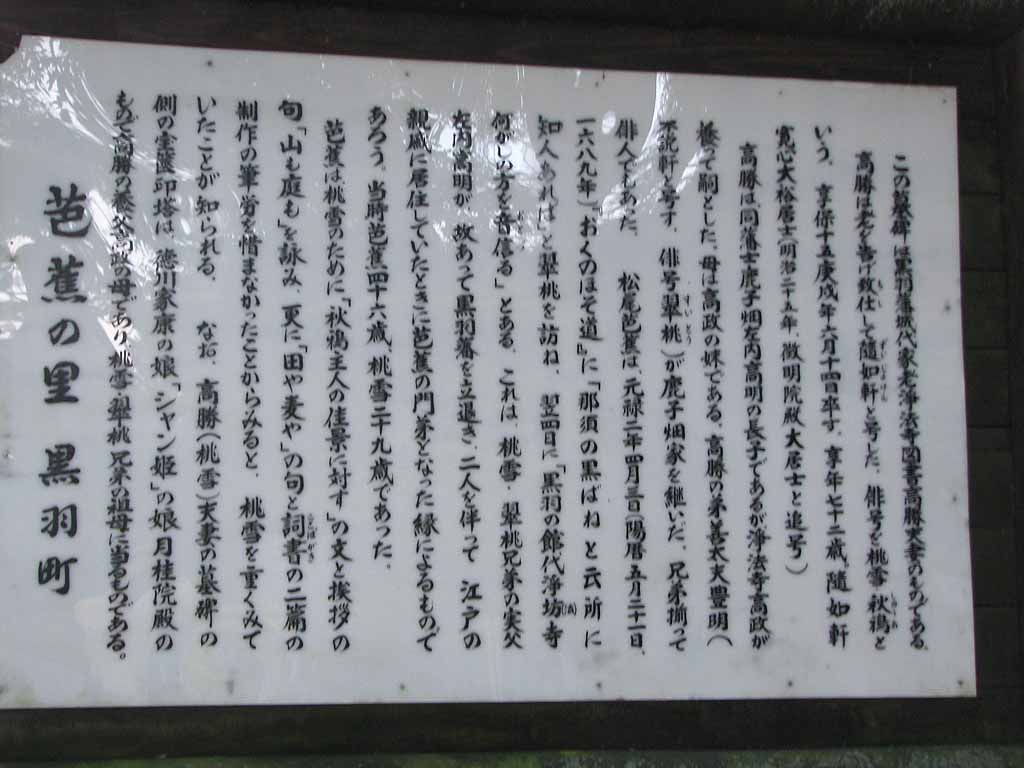 この墓碑は黒羽藩城代家老浄法寺図書高勝夫妻のものである。
高勝は老を告げ致仕して随如軒と号した。俳号を桃雪、秋鴉と
いう。享保十五庚戌年六月十四日卒す。享年七十二歳。随如軒
寛心大裕居士(明治二十五年、徴明院殿大居士と追号)
高勝は、同藩士鹿子畑左内高明の長子であるが浄法寺高政が
養って嗣とした。母は高政の妹である。高勝の弟善太夫豊明(
不説軒と号す、俳号翠桃)が鹿子畑家を継いだ。兄弟揃って
俳人でもあった。 松尾芭蕉は、元禄二年四月三日(陽暦五月二十一日、
一六八九年)、『おくのほそ道』に「那須の黒ばねと云所に
知人あれば」と翠桃を訪ね、翌四日に「黒羽の館代浄坊(法)寺
何がしの方を音信る」とある。これは、桃雪・翠桃兄弟の実父
左内高明が、故あって黒羽藩を立退き、二人を伴って江戸の
親戚に居住していたときに芭蕉の門弟となった縁によるもので
あろう。当時芭蕉四十六歳、桃雪二十九歳であった。
芭蕉は桃雪のために「秋鴉主人の佳景に対す」の文と挨拶の
句「山も庭も」を詠み、更に「田や麦や」の句と詞書の二篇の
制作の筆労を惜まなかったことからみると、桃雪を重くみて
いたことが知られる。 なお、高勝(桃雪)夫妻の墓碑の
側の宝篋印塔は、徳川家康の娘、「シャン姫」の娘月桂院殿の
ものと高勝の養父高政の母であり、桃雪・翠桃兄弟の祖母に当るものである。
芭蕉の里 黒羽町